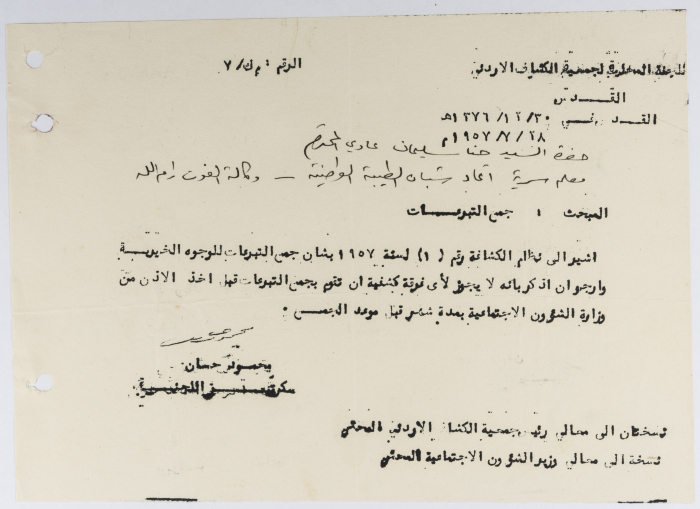 اللجنة المحلية لجمعية الكشاف الاردني
الرقم : م ك/٧
القدس
القدس في ٣٠/١٢/١٣٧٦هـ
٢٨/٧/١٩٥٧م
حضرة السيد حنا سليمان عادي المحترم
معلم سرية اتحاد شباب الطيبة الوطنية - وكالة الغوث رام الله
المبحث : جمع التبرعات
اشير الى نظام الكشافة رقم (١) لسنة ١٩٥٧ بشان جمع التبرعات للوجوه الخيرية
وارجو ان اذكر بانه لا يجوز لأى فرقة كشفية ان تقوم بجمع التبرعات قبل اخذ الاذن من
وزارة الشؤون الاجتماعية بمدة شهر قبل موعد الجمع .
محمود حسان
سكرتير اللجنة
نسختان الى معالي رئيس جمعية الكشاف الاردني المحترم
نسخة الى معالي وزير الشؤون الاجتماعية المحترم